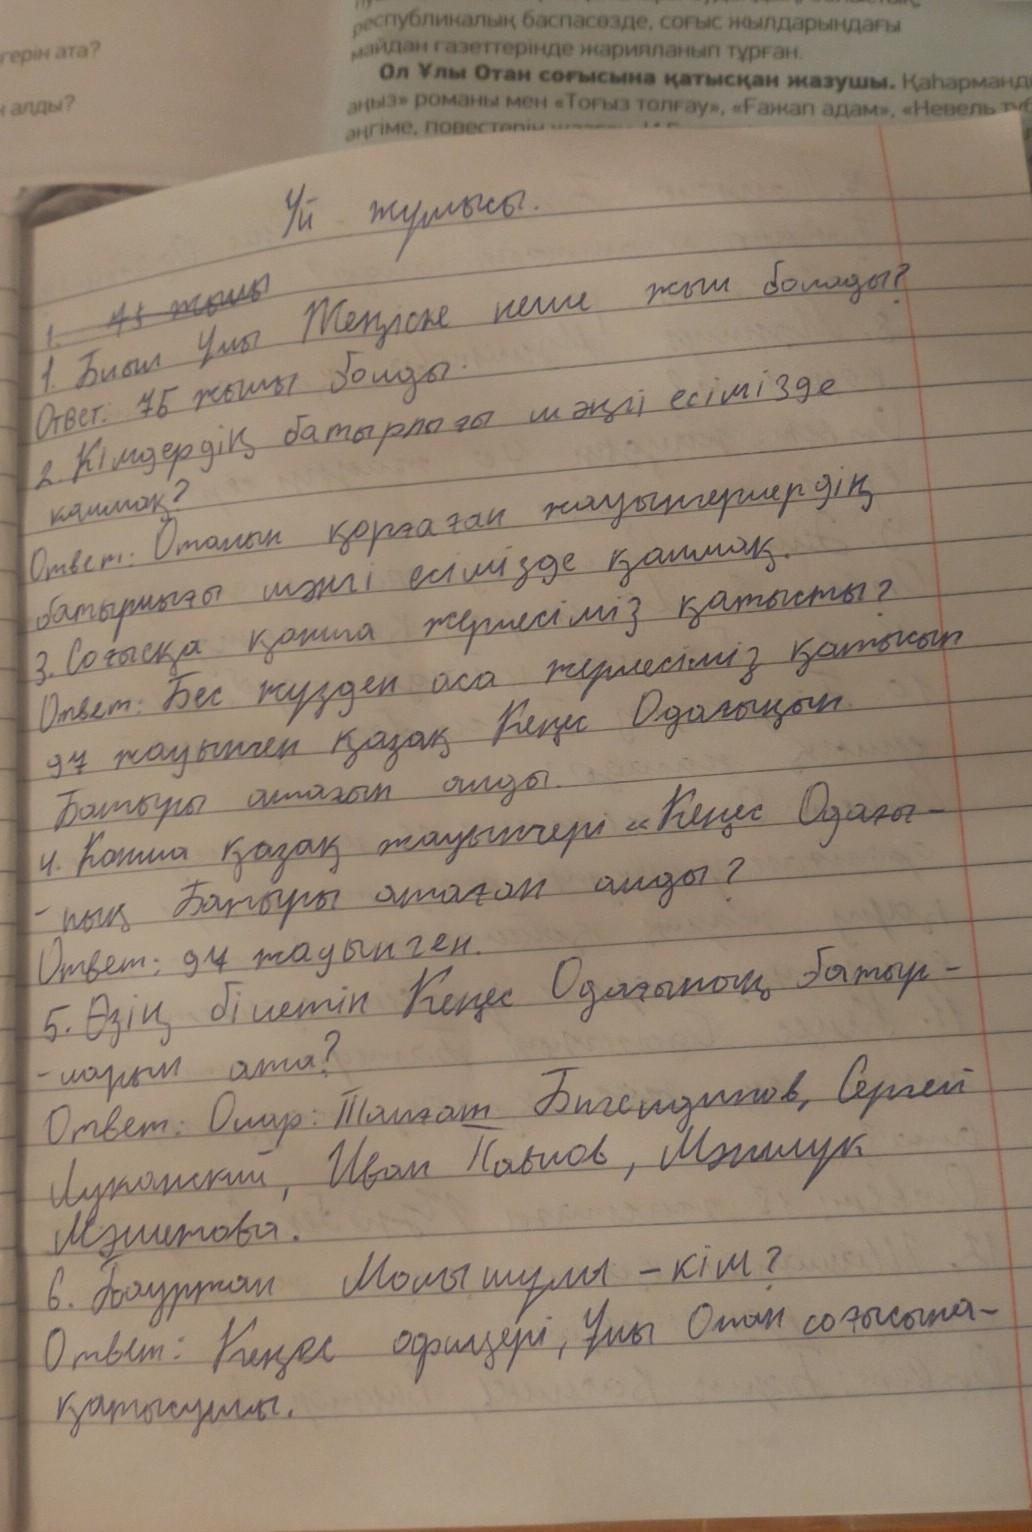 герін ата?
алды?
республикалық баспасөзде, соғыс жылдарындағы
майдан газеттерінде жарияланып тұрған.
Ол Ұлы Отан соғысына қатысқан жазушы. Қаһарманд
аңыз» романы мен «Тоғыз толғау», «Ғажап адам», «Невель түб
әңгіме, повестерін
Үй жұмысы.
1. 75 жылы
1. Биыл Ұлы Жеңіске неше жыл болады?
Ответ: 75 жылы болды.
2. Кімдердің батырлығы мәңгі есімізде
калмақ?
Ответ: Отанын қорғаған жауынгерлердің
батырлығы мәнгі есімізде қалмақ.
3. Соғысқа қанша жерлесіміз қатысты?
Ответ: Бес жүзден аса жерлесіміз қатысып
97 жауынген қазақ Кеңес Одағының
Батыры атағын алды.
4. Канша қазақ жауынгері «Кеңес Одағы-
-ның Батыры атаған алды?
Ответ: 97 жауынген.
5. Өзің білетін Кеңес Одағының батыр-
-ларын ата?
Ответ: Олар: Талғат Бигелдинов, Сергей
Луканский, Иван Павлов, Мәншук
Мәметова.
6. Бауржан Момышулы – кім?
Ответ: Кеңес офицері, Ұлы Отан соғысына-
қатысушы.